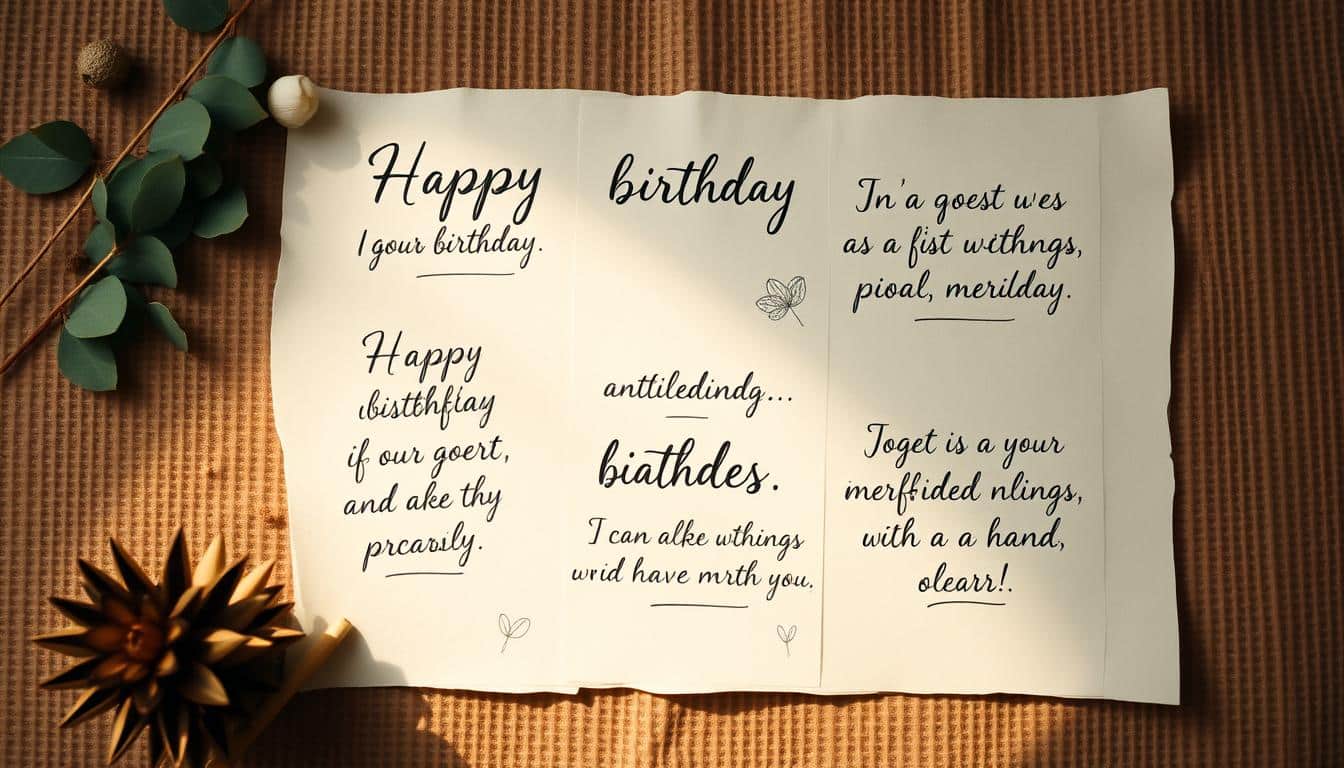 Happy
I gour birthday.
Happy
if our goert,
and ake thy
birthday
anttiledindg...
biathdes.
I can alke wthings
wrid have mrth you.
In'a goest wes
as a fist withngs,
pioal, merilday.
Joget is a your
merffided nlings,
with a a hand,
olearr!.